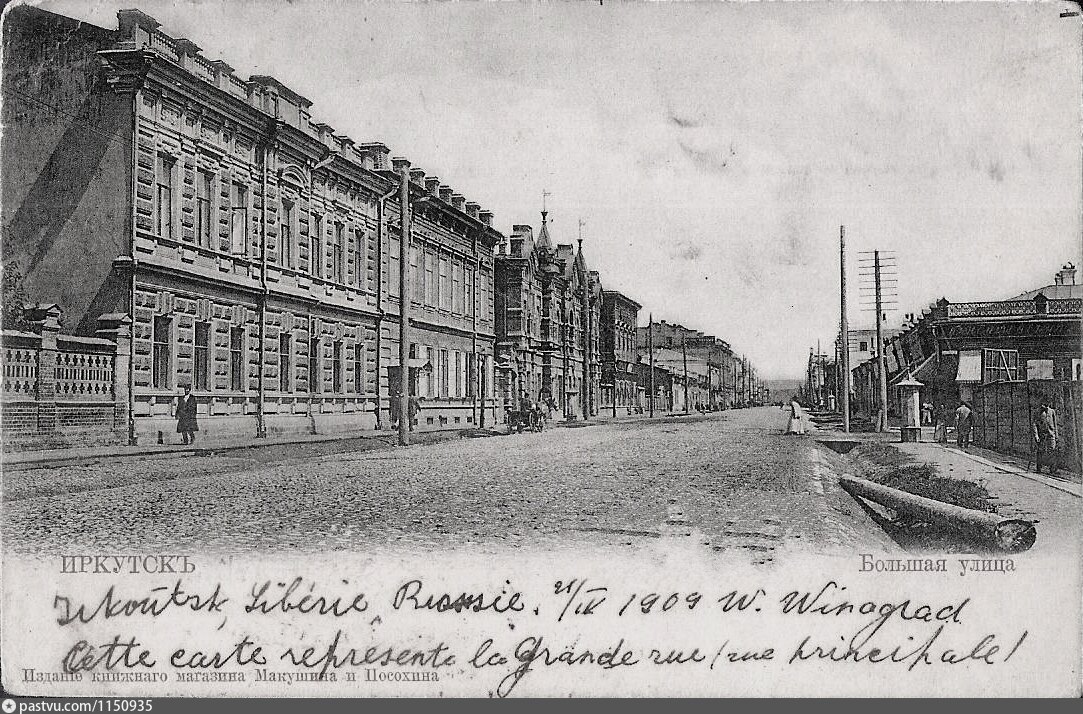 ИРКУТСКЪ
Большая улица
Irkoutsk, Sibérie, Russie. 21/IV 1909 W. Winograd
Cette carte represente la Grande rue (rue principale)
Изданіе книжнаго магазина Макушина и Посохина
pastvu.com/1150935